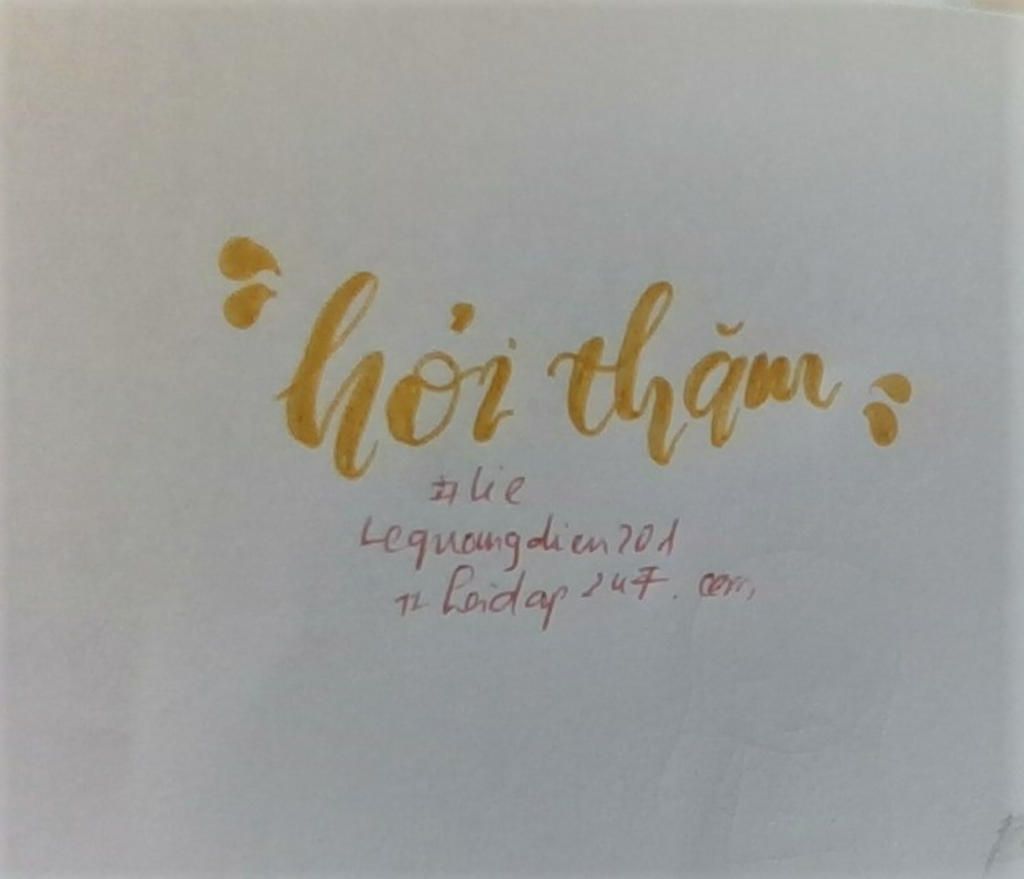 hỏi thăm
#lie
Lequangdien201
hoidap247.com